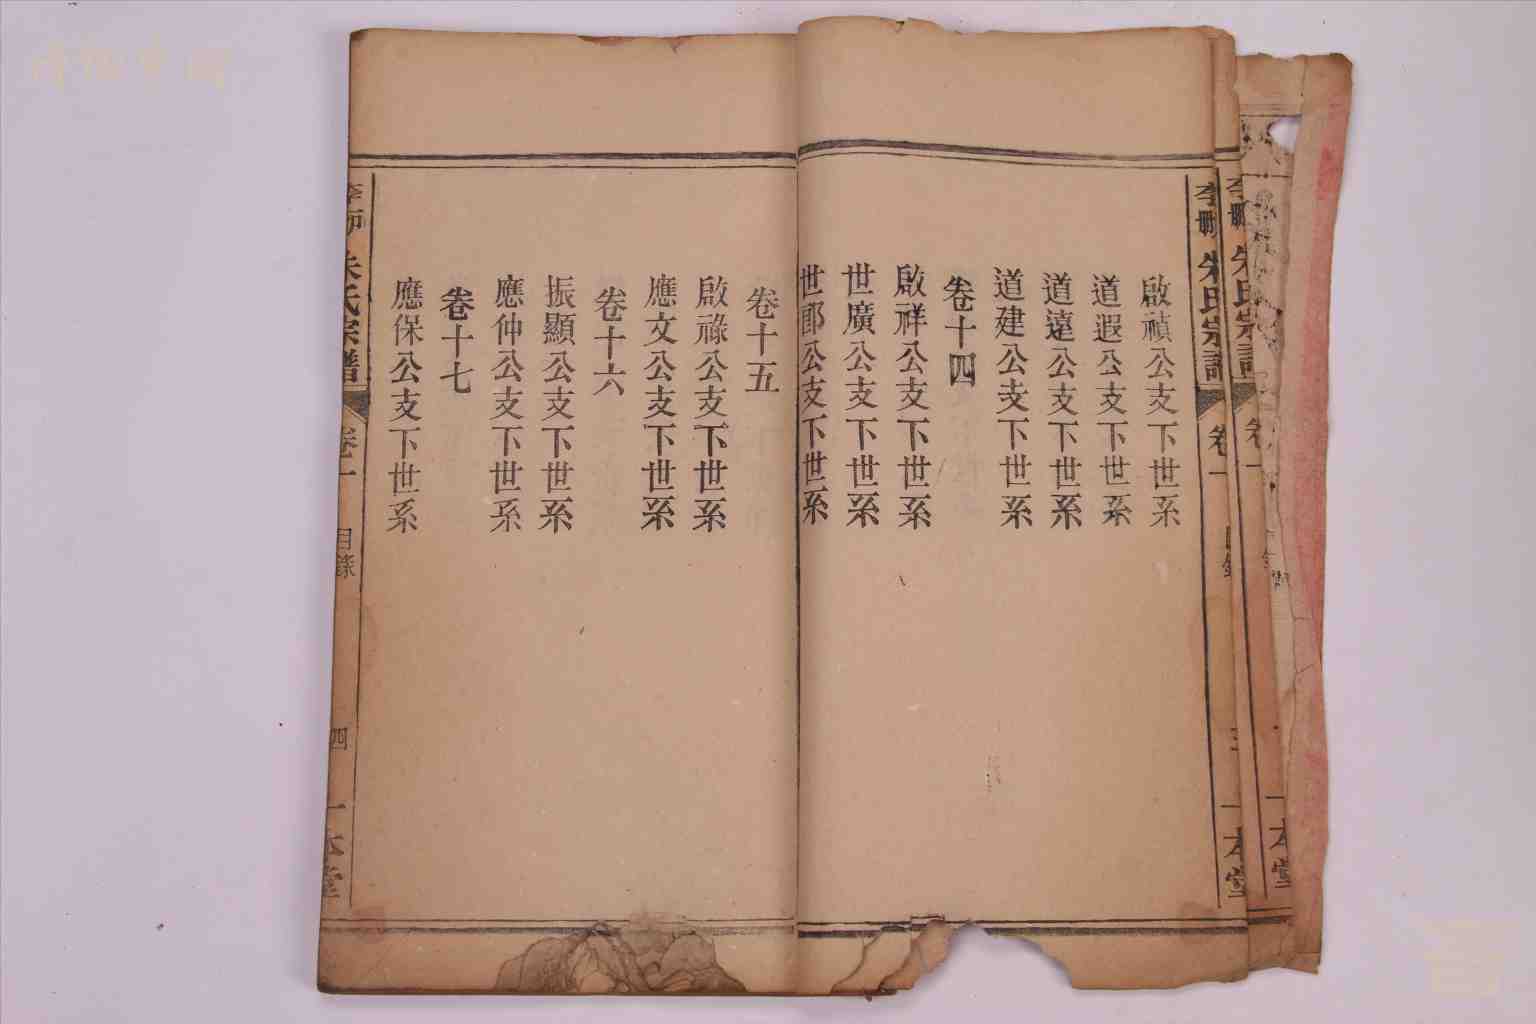 啟禎公支下世系
道遐公支下世系
道遠公支下世系
道建公支下世系
卷十四
啟祥公支下世系
世廣公支下世系
世郎公支下世系
卷十五
啟祿公支下世系
應文公支下世系
卷十六
振顯公支下世系
應仲公支下世系
卷十七
應保公支下世系
朱氏宗譜
卷一
目錄
四
一本堂